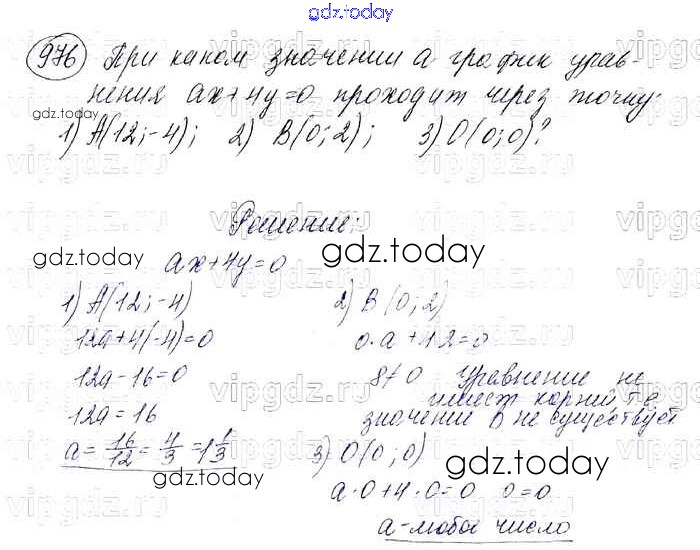 gdz.today
976 При каком значении a график урав-
нения ax+4y=0 проходит через точку:
1) A(12;-4); 2) B(0;2); 3) O(0;0)?
gdz.today
gdz.today
vipgdz.ru
Решение:
gdz.today
gdz.today
ax+4y=0
1) A(12;-4)
12a+4(-4)=0
12a-16=0
12a=16
a=16/12=4/3=1 1/3
2) B(0;2)
0·a+4·2=0
8≠0 Уравнение не
имеет корней, т.е.
значений B не существует
3) O(0;0)
a·0+4·0=0 0=0
a-любое число
gdz.today
gdz.today
vipgdz.ru